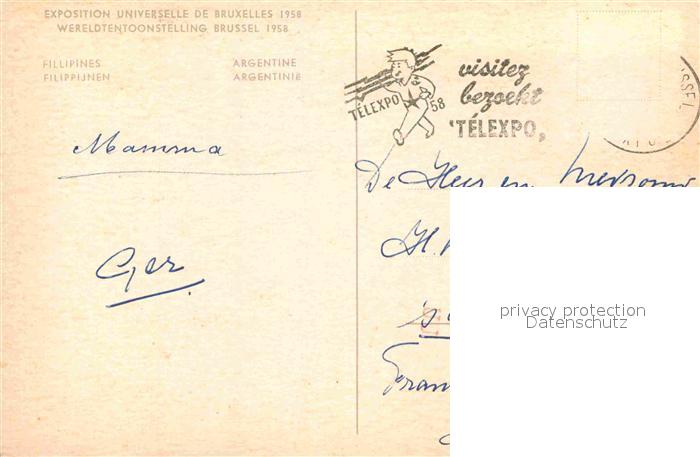 EXPOSITION UNIVERSELLE DE BRUXELLES 1958
WERELDTENTOONSTELLING BRUSSEL 1958
FILLIPINES ARGENTINE
FILIPPIJNEN ARGENTINIË
TÉLEXPO 58
visitez
bezoekt
'TÉLEXPO,
Mamma
Ger
De Heer en Mevrouw
H.
's
privacy protection
Datenschutz